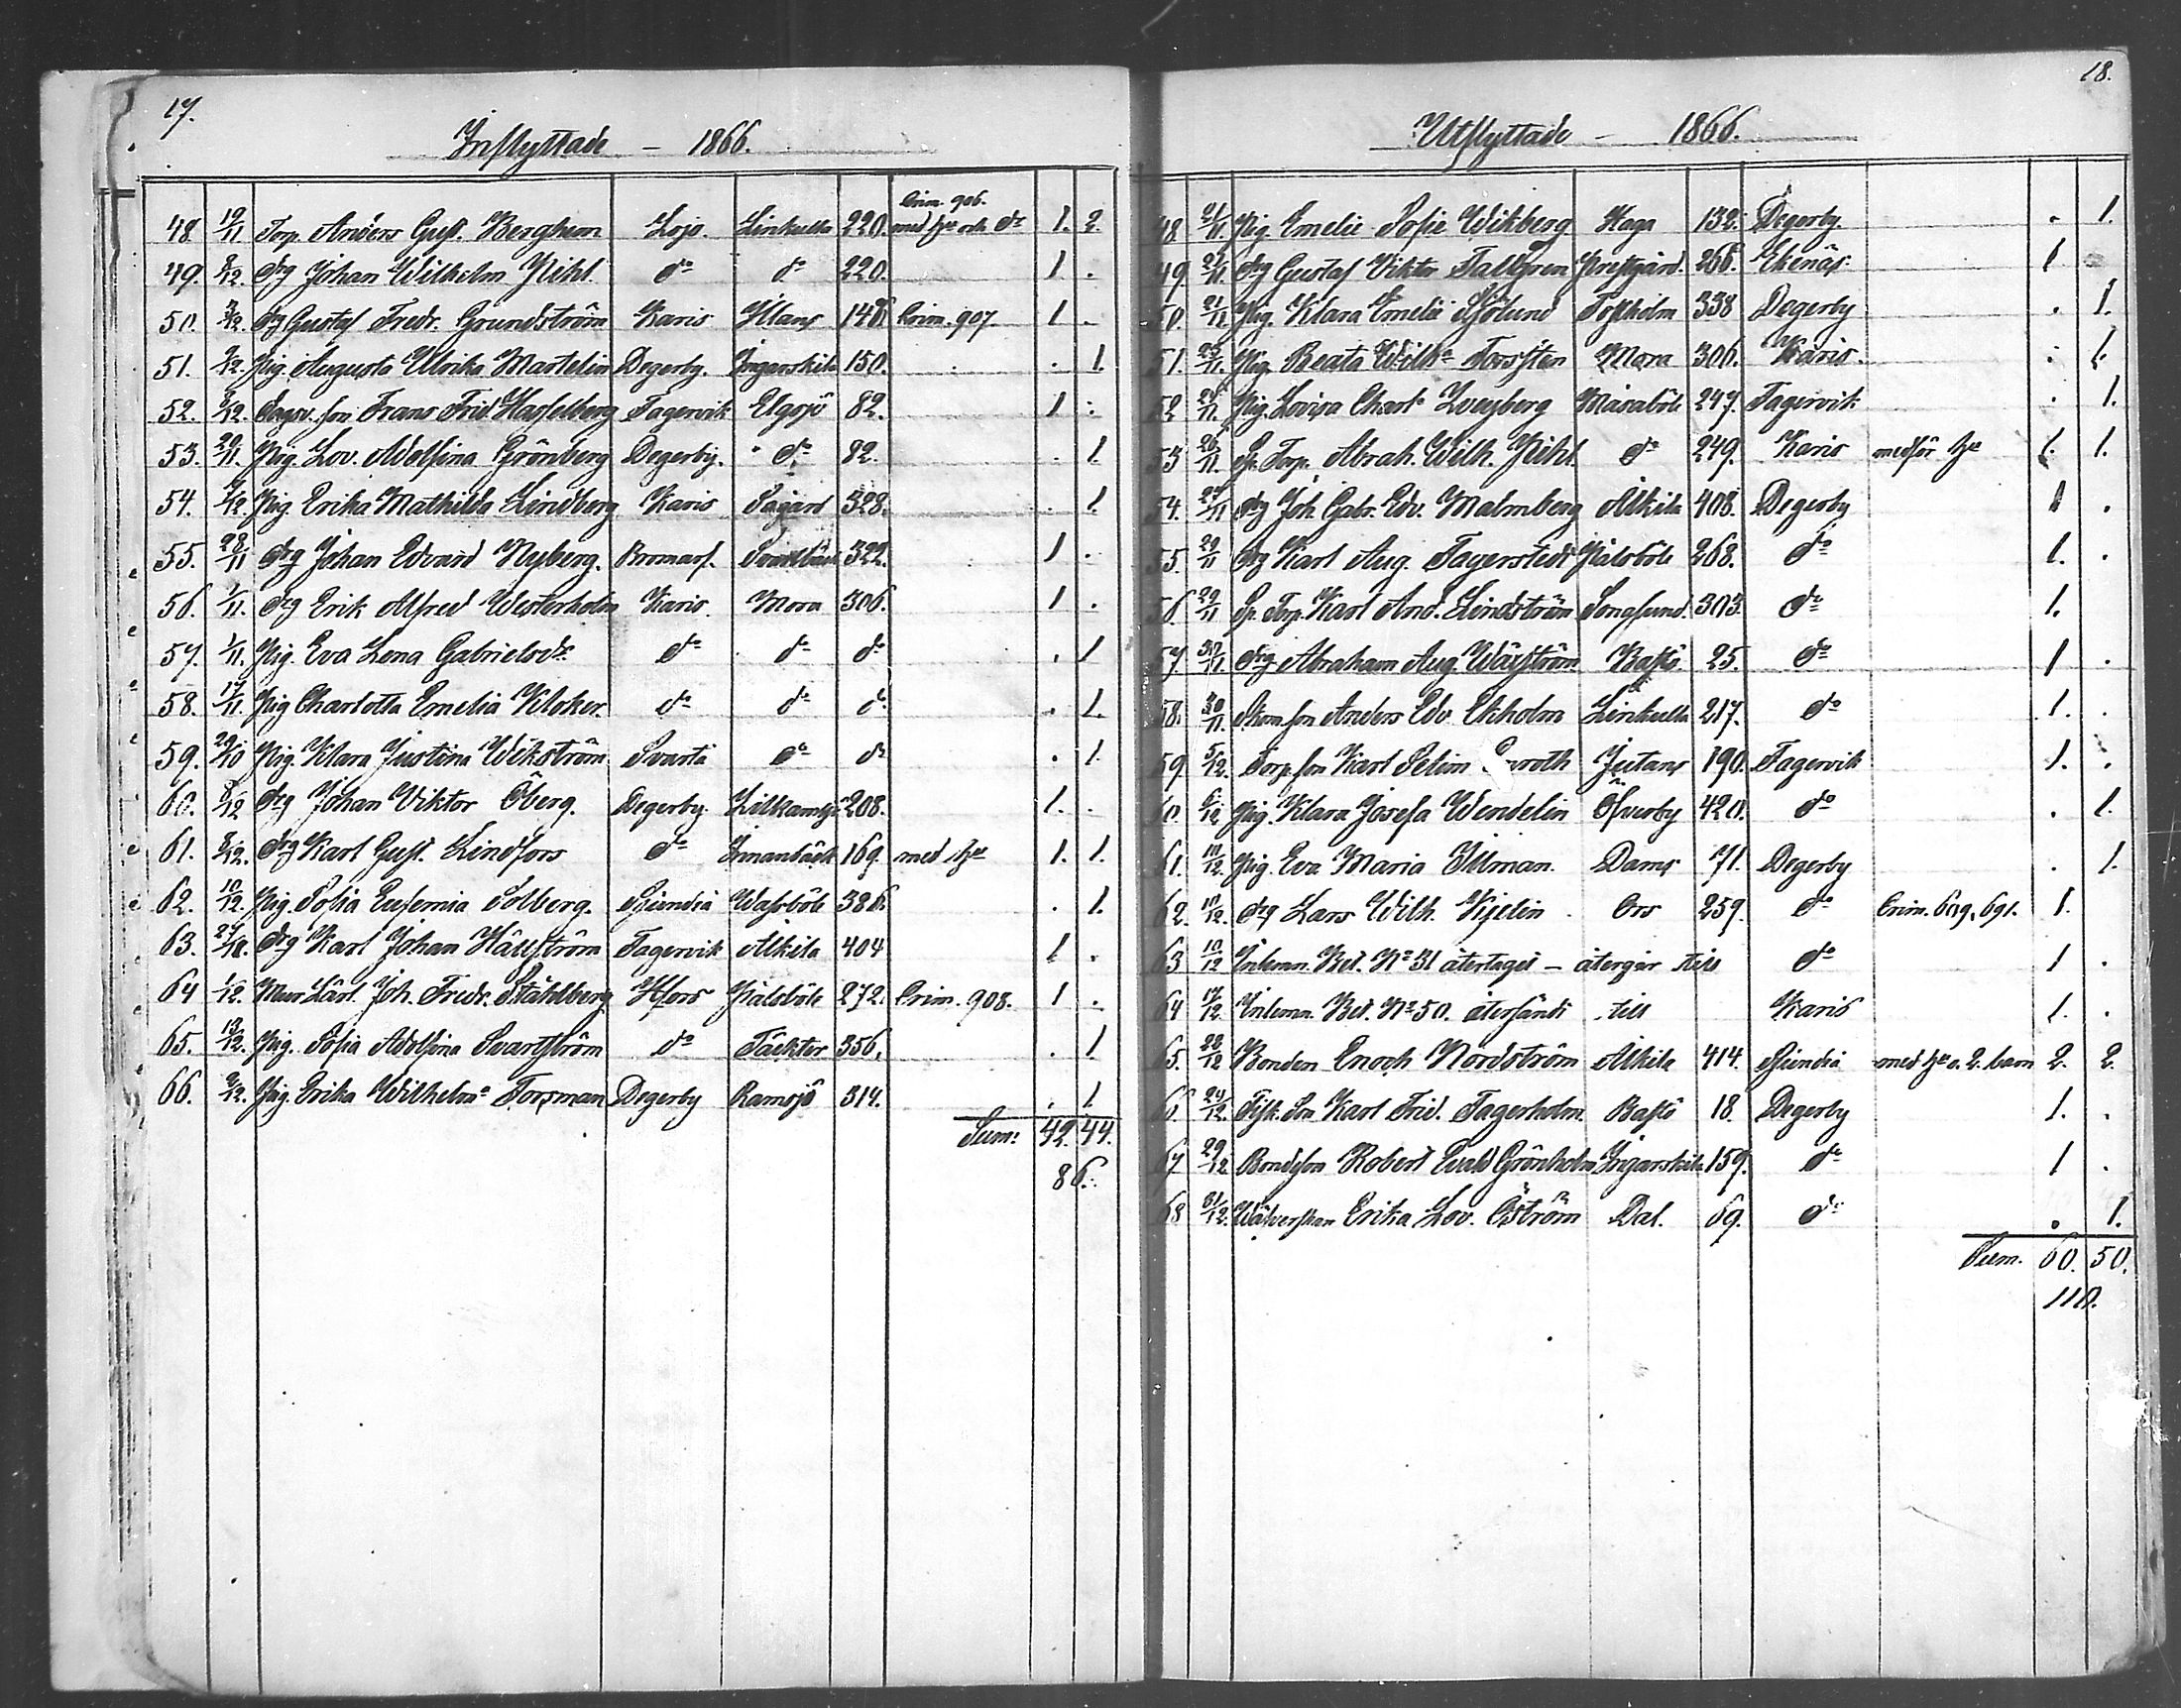 17.
Inflyttade - 1866.
Crim. 906.
48 19/11 Torp. Anders Gust. Berghem Lojo Linkulla 220. med hu och dr 1. 2.
49. 8/12. drg Johan Wilhelm Pihl. do do 220. 1 .
50. 3/12. drg Gustaf Fredr. Grundström Karis Klans 146. Crim. 907. 1 .
51. Pig. Augusta Ulrika Martelin Degerby. Ingarskila 150. . 1.
52. 8/12. Dagsv. son Frans Frid. Hasselberg Fagervik Elgsjö 82. 1 .
53. 29/11. Pig. Lov. Adolfina Grönberg Degerby. do 82. . 1.
54. Pig. Erika Mathilda Lindberg Karis Pagard 328. . 1.
55. 28/11 drg Johan Edvard Nyberg. Bromarf. Svartbäck 322. 1 .
56. 1/11. drg Erik Alfred Westerholm Karis. Mora 306. 1 .
57. 1/11. Pig. Eva Lena Gabrielsdr. do do do . 1
58. 17/11. Pig Charlotta Emelia Kloker. do do do . 1.
59. 29/10 Pig. Klara Justina Wikström Svartå do do . 1.
60. 8/12 drg Johan Viktor Öberg. Degerby 208. 1. .
61. 8/12. drg Karl Gust. Lindfors do Innanbäck 169. med hu 1. 1.
62. 10/12. Pig. Sofia Eufemia Solberg. Sjundeå Wasböle 386. . 1.
63. drg Karl Johan Hällström Fagervik Alkila 404 1 .
64 1/12. Mur Lärl. Joh. Fredr. Ståhlberg Hfors Kälsböle 272. Crim. 908. 1 .
65. 13/12. Pig. Sofia Adolfina Svartström do Täckter 356. . 1
66. 9/12. Pig. Erika Wilhelma Forsman Degerby Ramsjö 314. . 1.
Sum: 42. 44.
86.
18.
Utflyttade - 1866.
48 21/11. Pig. Emelie Sofie Wikberg Haga 132. Degerby. . 1.
49 21/11. drg Gustaf Viktor Tallgren Prestgård. 266. Ekenäs 1
50. 21/11 Pig. Klara Emelie Sjölund Tostholm 338 Degerby . 1.
51. 23/11. Pig. Beata Wilha Forssten Mora 306. Karis. . 1.
52 Pig. Lovisa Charl. Lveyberg Måsaböle 247. Fagervik . 1.
53 26/11. Sp. Torp. Abrah. Wilh. Pihl do 249. Karis medför hu 1. 1.
54. 27/11 drg Joh. Gabr. Edv. Malmberg Alkila 408. Degerby 1 .
55. 29/11 drg Karl Aug. Fagerstedt Kälsböle 268. do 1. .
56 29/11 Sp. Torp. Karl And. Lindström Longsund. 303. do 1.
57 30/11. drg Abraham Aug. Wäxström Bassö 25. do 1 .
58. 30/11. Skom. son Anders Edv. Ekholm Linkulla 217. do 1. .
59 5/12. Torp. son Karl Selim Jutans 190. Fagervik 1. .
60. 6/12 Pig. Klara Josefa Wendelin Öfverby 420. do . 1.
61. 10/12. Pig. Eva Maria Illman. Dams 71. Degerby . 1.
62. 10/12. drg Lars Wilh. Kjelin Ors 259. do Crim. 619, 691. 1.
63 10/12 Inlemn. Bet. No 31 återtaget - återgår till do 1 .
64 17/12. Inlemn. Bet. No 50. återsändt till Karis 1. .
65. 22/12 Bonden Enoch Nordström Alkila 414. Sjundeå med hu o. 2. barn 2. 2.
66. 24/12. Fisk. Son Karl Frid. Fagerholm. Bassö 18. Degerby 1. .
67 29/12 Bondeson Robert Evald Grönholm Ingarskila 159. do 1 .
68 31/12. Wäfverskan Erika Lov. Öström Dal. 69. do . 1.
Sum. 60. 50.
110.